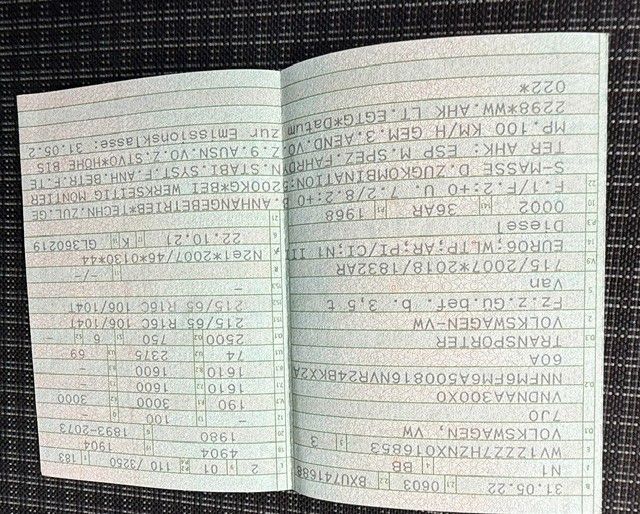 31.05.22 0603 BXU741698
N1 BB
WV1ZZZ7HZNX016853 3
VOLKSWAGEN, VW
7J0
VNDNAA300X0
NNFM6FM6A500816NVR24BKX2A
60A
TRANSPORTER
VOLKSWAGEN-VW
Fz.z.Gü.bef. b. 3,5 t
Van
715/2007*2018/1832AR
EURO6;WLTP;AR;PI/CI;N1 III
Diesel
0002 36AR 1968
F.1/F.2:+0 U. 7.2/8.2:+0 B
S-MASSE D.ZUGKOMBINATION:
TER AHK: ESP M.SPEZ.FAHRDY
MP.100 KM/H GEM.3.AEND.VO.
2298*WW.AHK LT.EGTG*Datum
022*
2 01 110 /3250 183
4904
1904
1980 1893-2073
- 100 -
190 3000 3000
1610 1600 -
1610 1600 -
74 2375 69
2500 750 6 -
215/65 R16C 106/104T
215/65 R16C 106/104T
-
-/-
N2e1*2007/46*0130*44
22.10.21 K GL360219
B.ANHAENGEBETRIEB*TECHN.ZUL.GE
5200KG*BEI WERKSEITIG MONTIER
N.STABI.SYST.F.ANH.BETR.F.TE
Z.9.Z.AUSN.VO.Z.STVO*HÖHE BIS
zur Emissionsklasse: 31.05.2